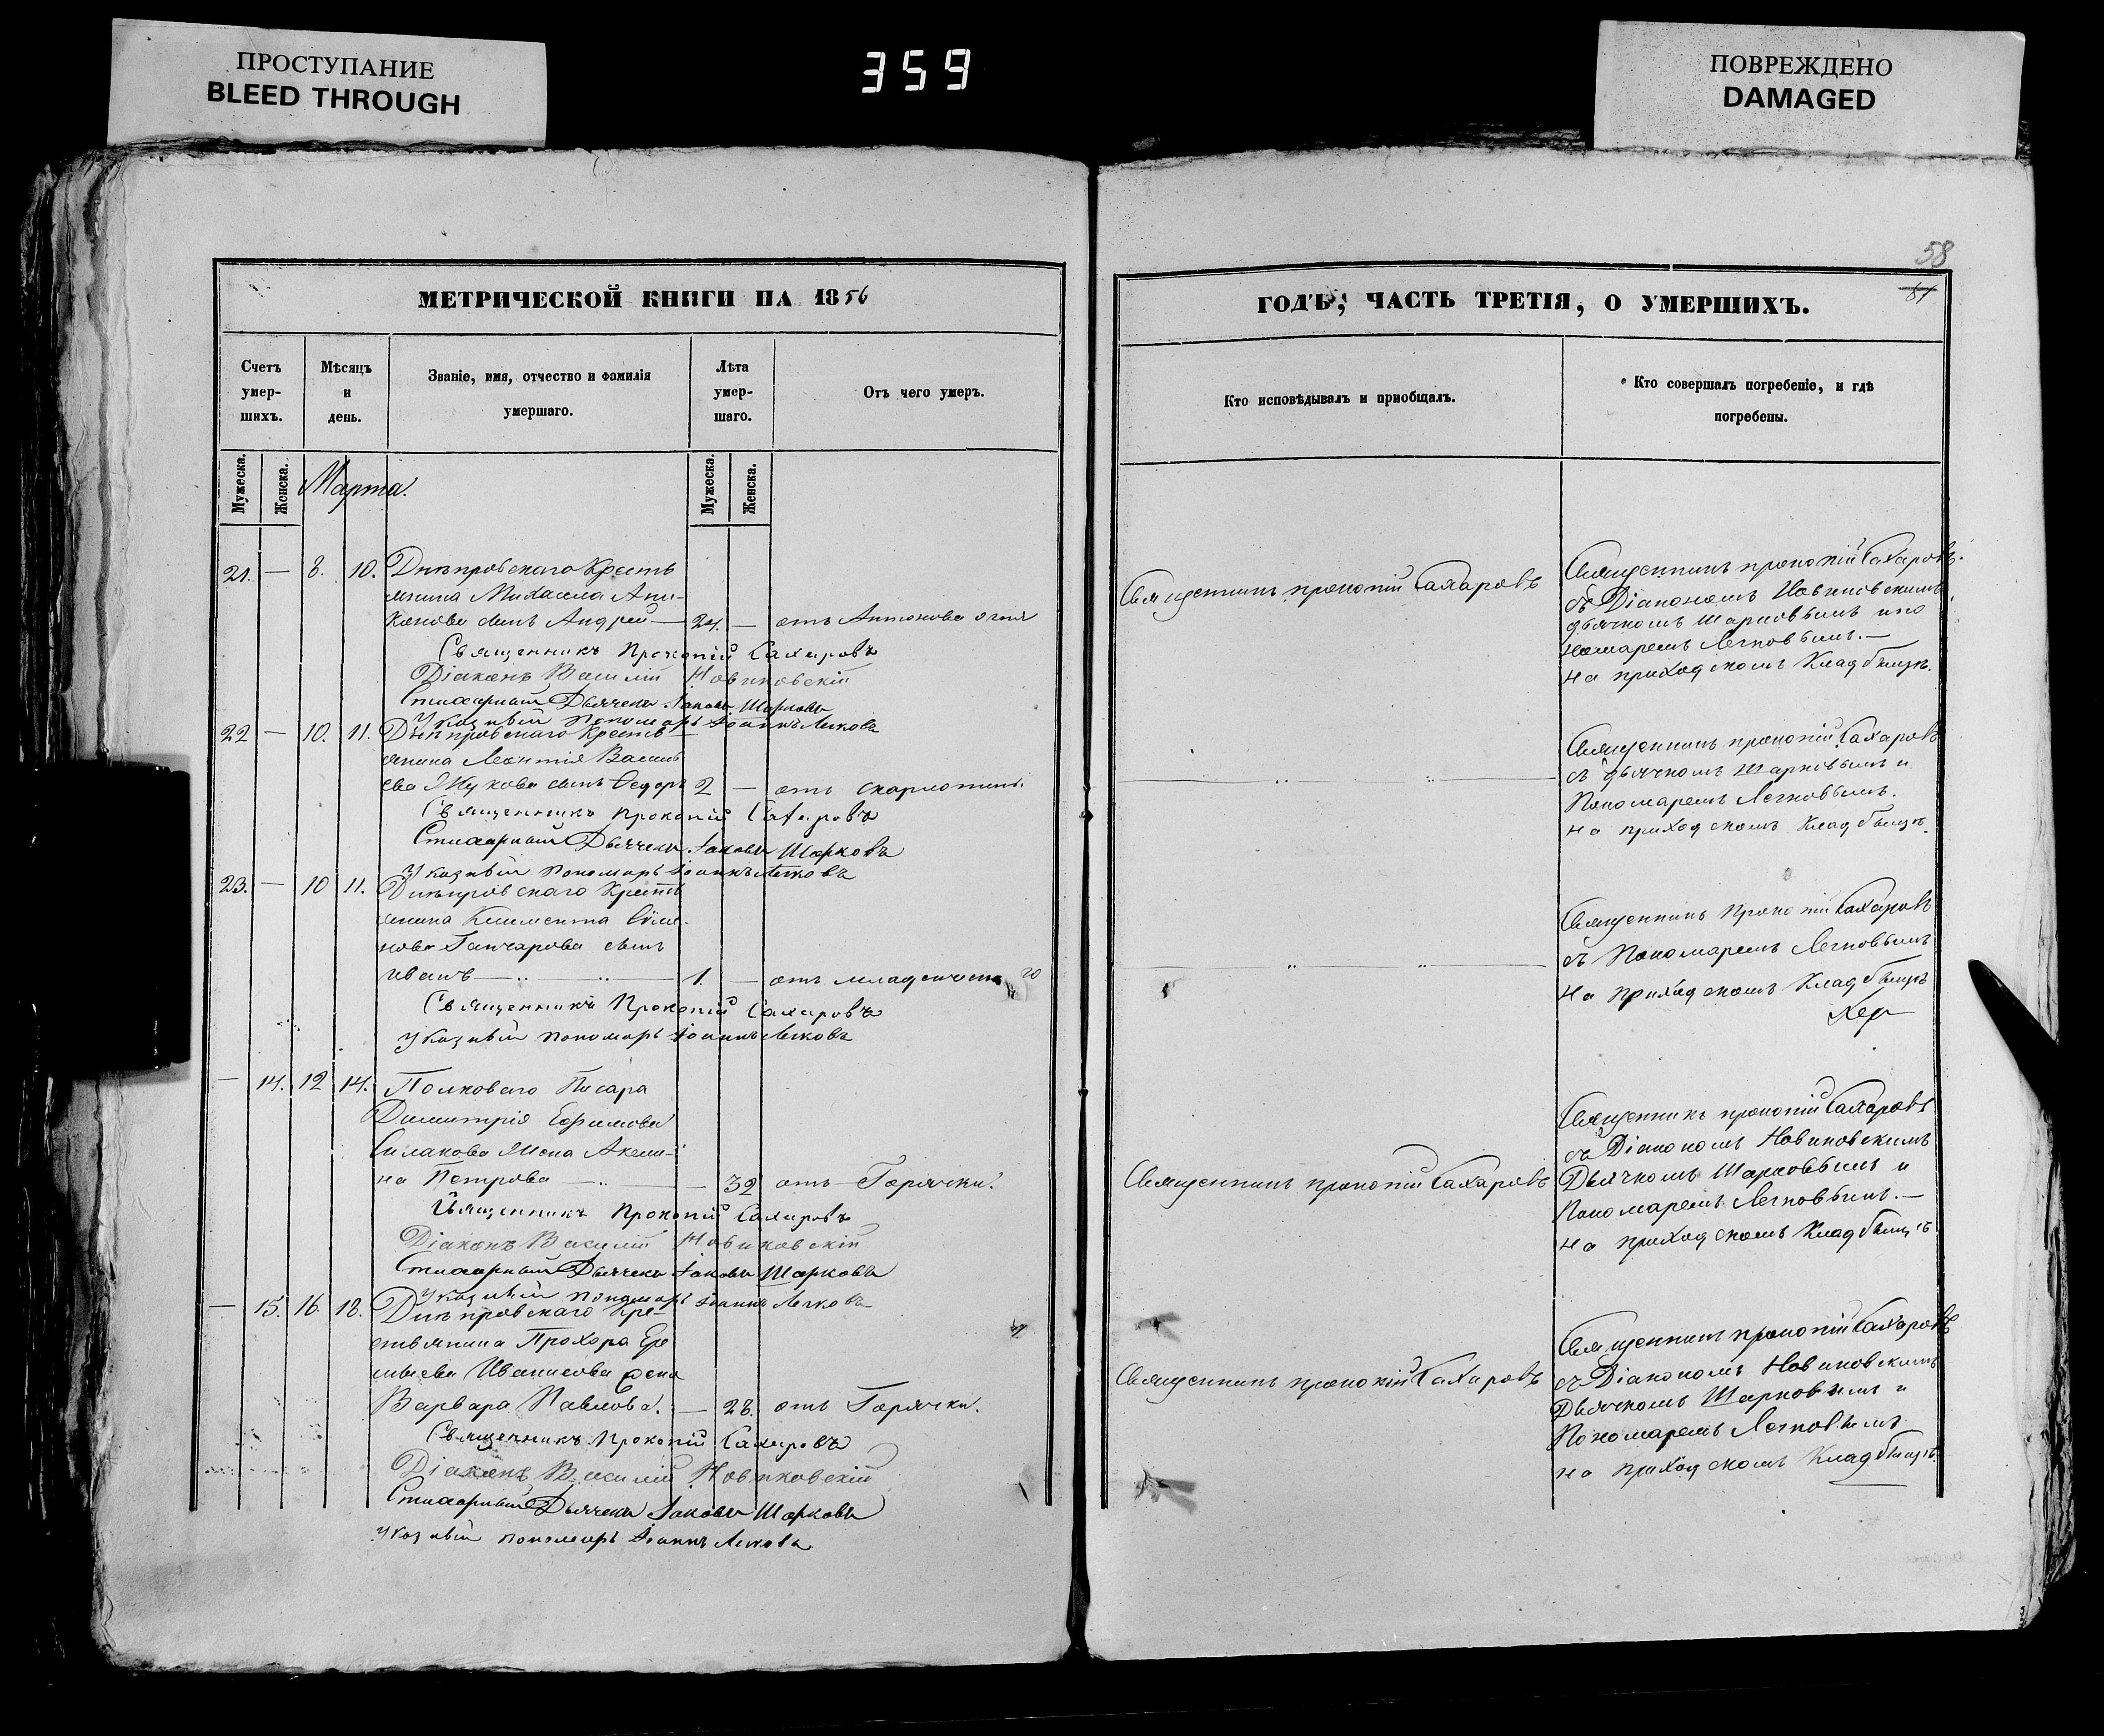 ПРОСТУПАНИЕ
BLEED THROUGH
359
ПОВРЕЖДЕНО
DAMAGED
МЕТРИЧЕСКОЙ КНИГИ НА 1856
Счетъ
умер-
шихъ.
Мѣсяцъ
и
день.
Званіе, имя, отчество и фамилія
умершаго.
Лѣта
умер-
шаго.
Отъ чего умеръ.
Мужеска.
Женска.
Марта.
Мужеска.
Женска.
21. — 8. 10. Днѣпровскаго Кресть
янина Михаила Ани-
канова сынъ Андрей — 24. — отъ Антонова огня
Священникъ Прокопій Сахаровъ
Діаконъ Василій Новиковскій
Стихарный Дьячекъ Іаковъ Шарковъ
Указный Пономарь Іоаннъ Легковъ
22 — 10. 11. Днѣпровскаго Кресть
янина Леонтія Василь
ева Жукова сынъ Ѳедоръ 2 — отъ скарлотины.
Священникъ Прокопій Сахаровъ
Стихарный Дьячекъ Іаковъ Шарковъ
Указный Пономарь Іоаннъ Легковъ
23. — 10 11. Днѣпровскаго Кресть
янина Климента
Ганчарова сынъ
Иванъ — 1. — отъ младенческаго
Священникъ Прокопій Сахаровъ
Указный Пономарь Іоаннъ Легковъ
— 14. 12 14. Полковаго Писара
Димитрія Ефимова
Силакова жена Акели-
на Петрова — 32 отъ Горячки.
Священникъ Прокопій Сахаровъ
Діаконъ Василій Новиковскій
Стихарный Дьячекъ Іаковъ Шарковъ
Указный Пономарь Іоаннъ Легковъ
— 15. 16. 18. Днѣпровскаго Кре-
стьянина Прохора Ере
мѣева Иванисова жена
Варвара Павлова. — 28. отъ Горячки.
Священникъ Прокопій Сахаровъ
Діаконъ Василій Новиковскій
Стихарный Дьячекъ Іаковъ Шарковъ
Указный Пономарь Іоаннъ Легковъ
58
ГОДЪ, ЧАСТЬ ТРЕТІЯ, О УМЕРШИХЪ.
Кто исповѣдывалъ и пріобщалъ.
Кто совершалъ погребеніе, и гдѣ
погребены.
Священникъ прокопій Сахаровъ
Священникъ прокопій Сахаровъ.
съ Діакономъ Новиковскимъ
дьячкомъ Шарковымъ и по
номаремъ Легковымъ. —
на приходскомъ Кладбищѣ.
Священникъ прокопій Сахаровъ
съ дьячкомъ Шарковымъ и
Пономаремъ Легковымъ.
на приходскомъ Кладбищѣ.
Священникъ Прокопій Сахаровъ
съ Пономаремъ Легковымъ
на приходскомъ Кладбищѣ
Священникъ прокопій Сахаровъ
Священникъ прокопій Сахаровъ
съ Діакономъ Новиковскимъ
Дьячкомъ Шарковымъ и
Пономаремъ Легковымъ. —
на приходскомъ Кладбищѣ
Священникъ прокопій Сахаровъ
Священникъ прокопій Сахаровъ
съ Діакономъ Новиковскимъ
Дьячкомъ Шарковымъ и
Пономаремъ Легковымъ
на приходскомъ Кладбищѣ.